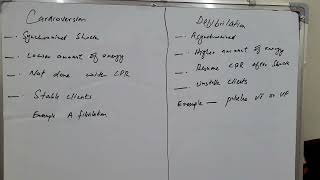 Cardioversion
— Synchronised Shock
— Lower amount of energy
— Not done with CPR
— Stable clients
Example A fibrilation
Defibrilation
— Asynchronised
— Higher amount of energy
— Resume CPR after shock
— unstable clients
Example — pulseless VT or VF